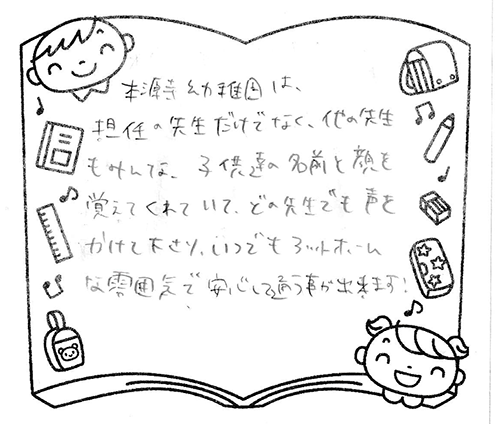 本源寺幼稚園は、
担任の先生だけでなく、他の先生
もみんな、子供達の名前と顔を
覚えてくれていて、どの先生でも声を
かけて下さり、いつでもアットホーム
な雰囲気で安心して通う事が出来ます!